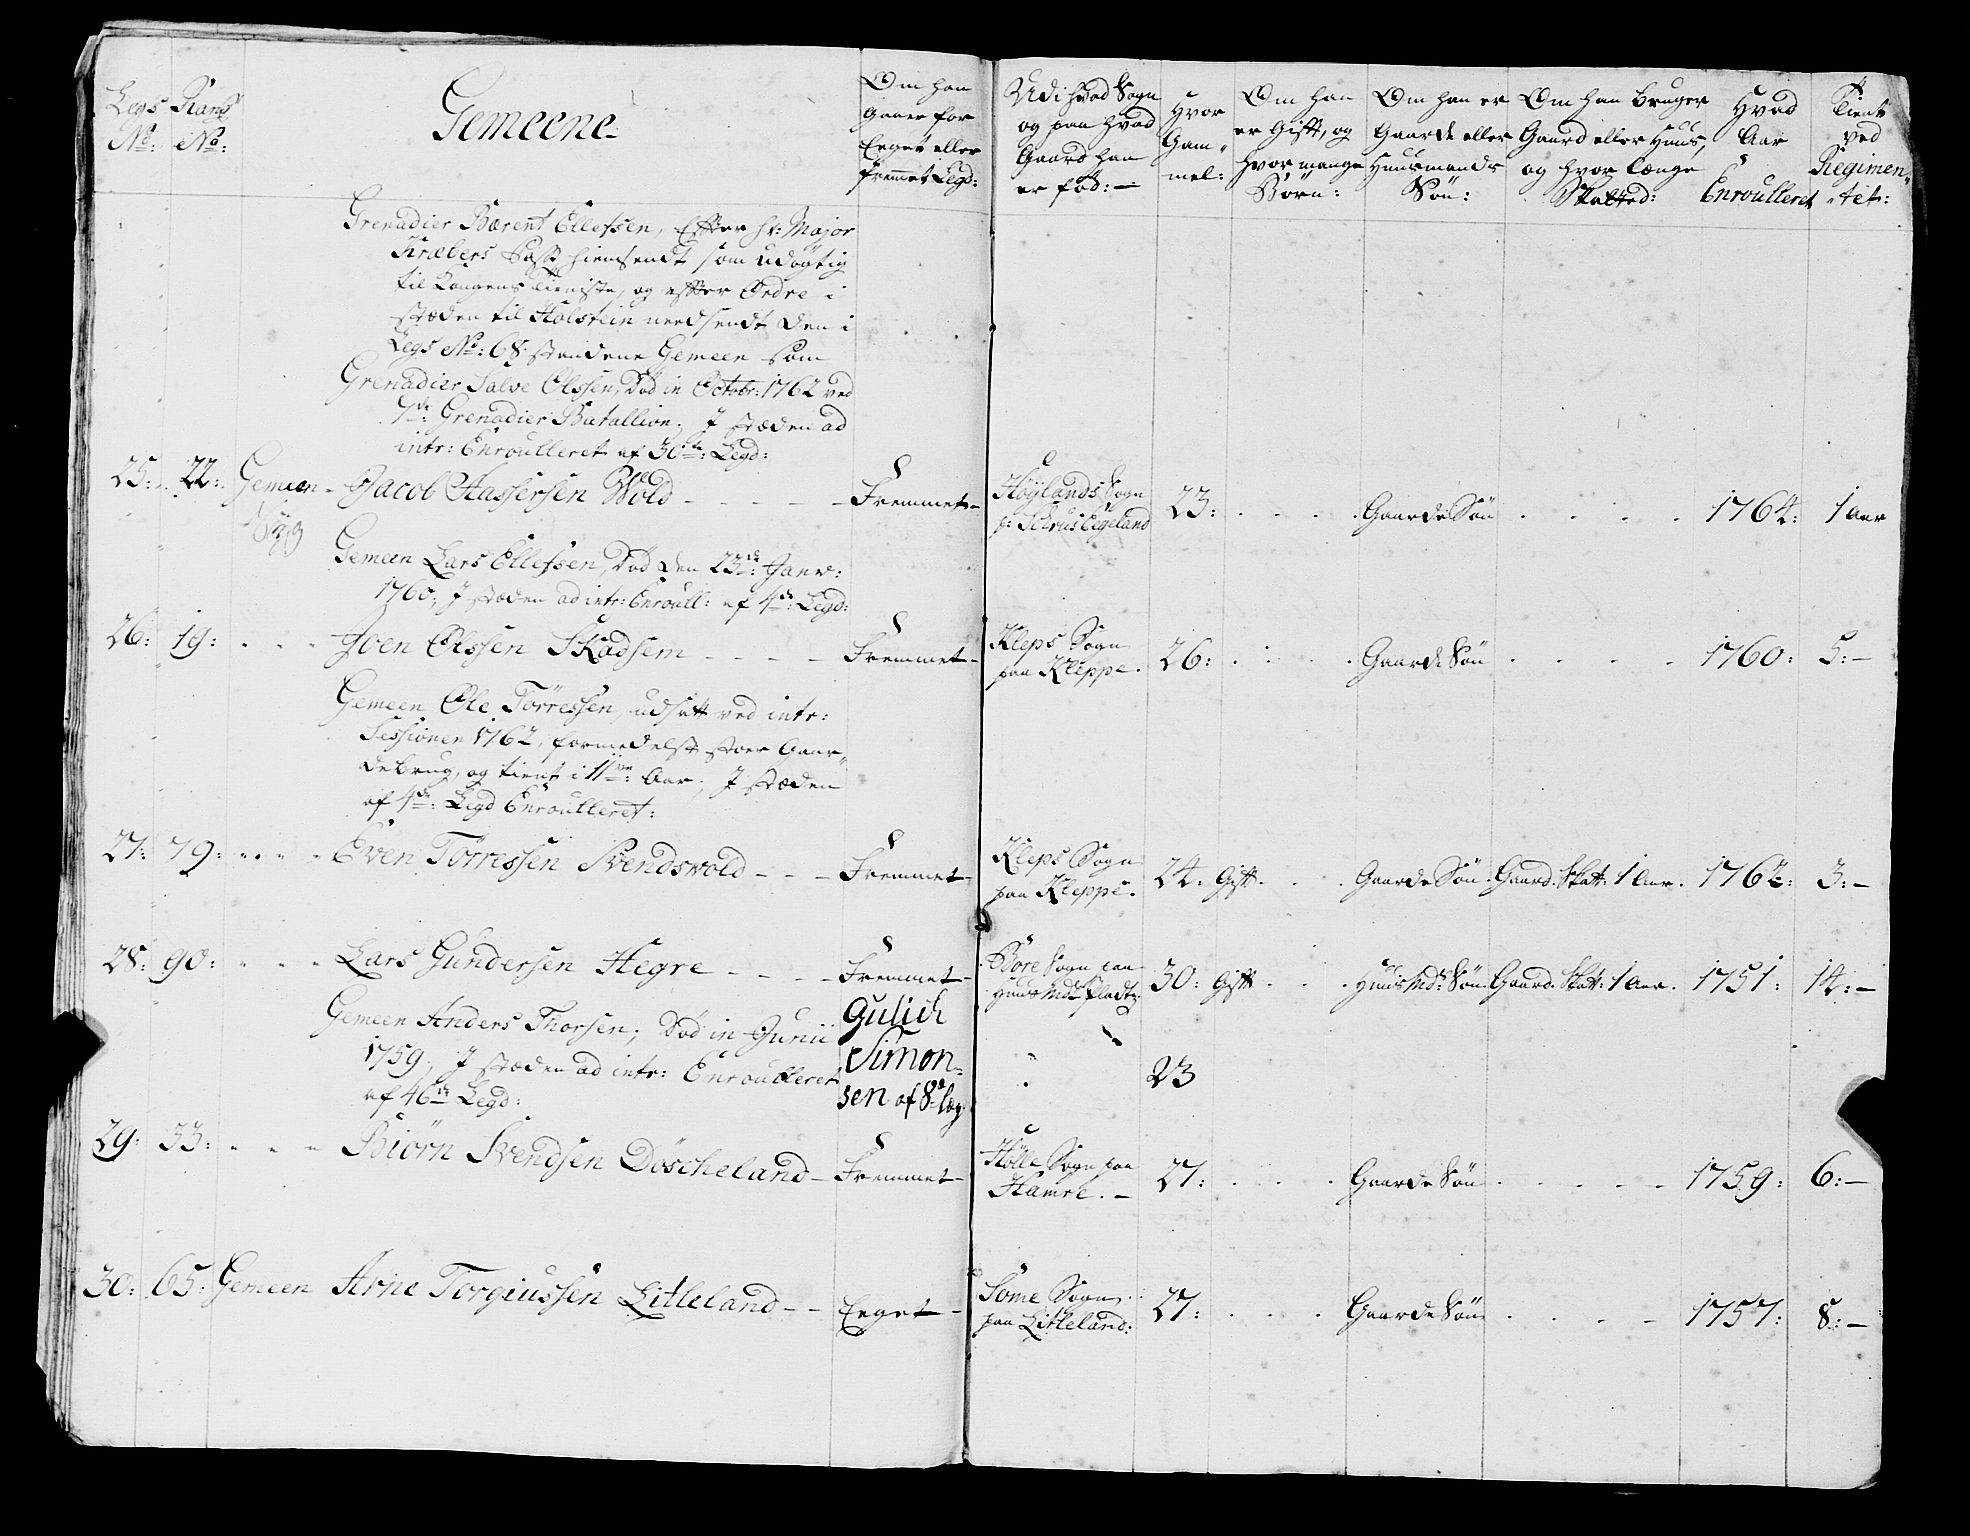 Legs Rang
No: No:
Gemeene
Om han
gaaer for
Eeget eller
fremet Legd:
Udi hvad Sogn
og paa hvad
Gaard han
er fød:
Hvor
Gam-
mel:
Om han
er Gift, og
hvor mange
Børn:
Om han er
Gaarde eller
Huusmands
Søn:
Om han bruger
Gaard eller Huus,
og hvor længe
Skatted:
Hvad
Aar
Enroulleret
Tient
ved
Regimen-
tet:
Grenadier Bærent Ellefsen, Efter hr: Major
Kræbers Pass hiemsendt som udøgtig
til Kongens Tieniste, og efter Ordre i
stæden til Holstein nedsendt den i
Legs No: 68 staaende Gemeen som
Grenadier Salve Olssen, Død in Octobr: 1762 ved
7de: Grenadier Batallion, J stæden ad
intr: Enroulleret af 30te: Legd:
25: 22: Gemeen Jacob Hassersen Wold Fremmet Höylands Sogn 23: Gaarde Søn 1764: 1 Aar
Syg p: Skrus Eegeland
Gemeen Lars Ellefsen, Død den 23de: Janv:
1760, J stæden ad intr: Enroull: af 4de: Legd:
26: 19: Joen Olssen Skadsem Fremmet Kleps Sogn 26: Gaarde Søn 1760: 5:
paa Kleppe.
Gemeen Ole Törressen, udsatt ved intr:
Sessionen 1762, formedelst stoer Gaar-
debrug, og tient i 11ve: Aar, J stæden
af 4de: Legd Enroulleret:
27: 79: Even Törressen Svendsvold Fremmet Kleps Sogn 24: Gift Gaarde Søn Gaard. Skatt: 1 Aar. 1762: 3:
paa Kleppe.
28: 90: Lars Gundersen Hegre Fremmet Bore Sogn paa 30: Gift Huus Md: Søn Gaard. Skatt: 1 Aar. 1751: 14:
Huus Mds Pladtz
Gemeen Anders Thorsen, Død in Junii Gulich
1759, J stæden ad intr: Enroulleret Simon- 23
af 46de Legd: sen af 8de læg
29: 33: Biörn Svendsen Döscheland Fremmet Hölle Sogn paa 27: Gaarde Søn 1759: 6:
Hamre.
30: 65: Gemeen Arne Torgiussen Litleland Eeget Some Sogn 27: Gaarde Søn 1757: 8:
paa Litleland: